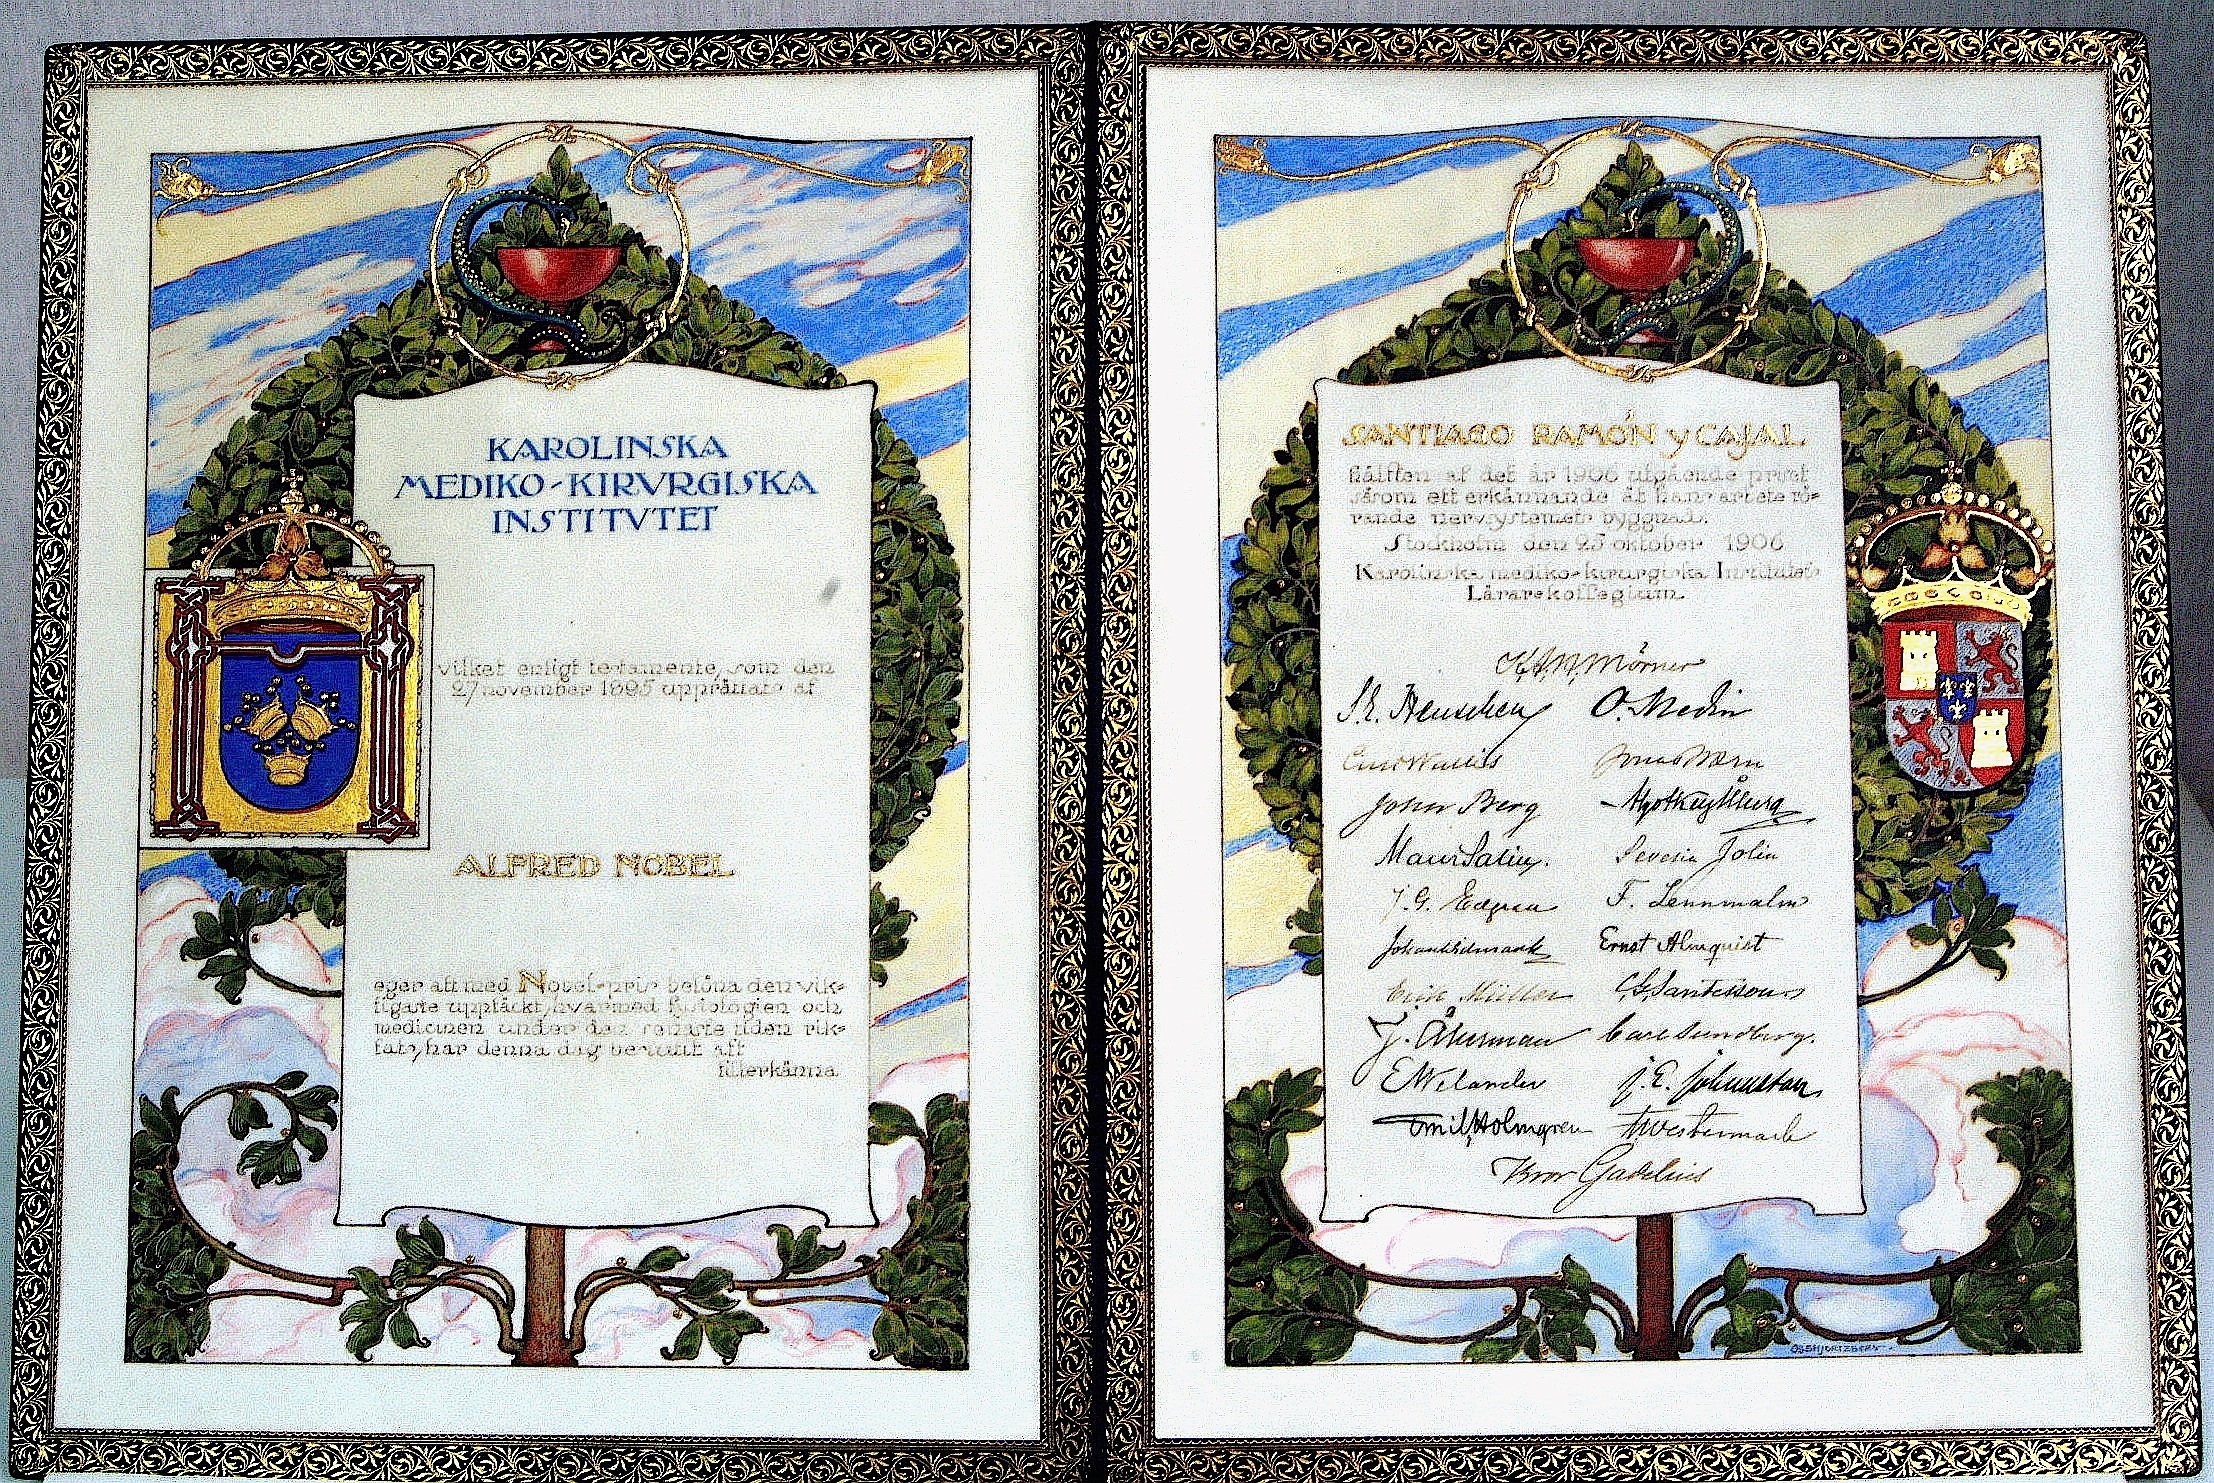 KAROLINSKA
MEDIKO-KIRVRGISKA
INSTITVTET
vilket enligt testamente, som den
27 november 1895 upprättats af
ALFRED NOBEL
eger att med Nobel-pris belöna den vik-
tigaste upptäckt, hvarmed fysiologien och
medicinen under den senaste tiden rik-
tats, har denna dag beslutit att
tillerkänna
SANTIAGO RAMÓN y CAJAL
hälften af det år 1906 utgående priset
såsom ett erkännande åt hans arbete rö-
rande nervsystemets byggnad.
Stockholm den 25 oktober 1906
Karolinska mediko-kirurgiska Institutets
Lärarekollegium
K.A.H. Mörner
S.E. Henschen O. Medin
Curt Wallis Jonas Wærn
John Berg Algot Key-Åberg
Mauritz Salin. Severin Jolin
J.G. Edgren F. Lennmalm
Johan Widmark Ernst Almquist
Erik Müller C.G. Santesson
J. Åkerman Carl Sundberg.
E Welander J.E. Johansson
Emil Holmgren F Westermark
Bror Gadelius